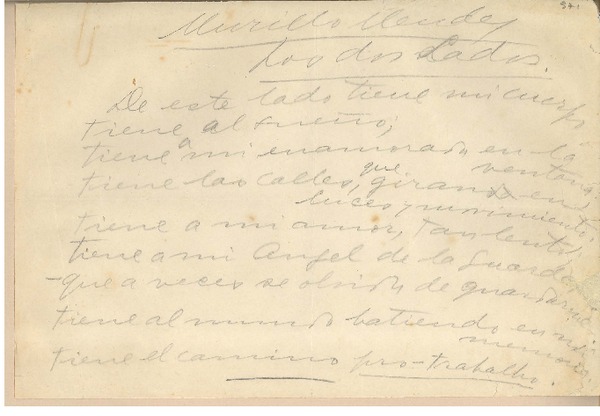 941
Murillo Mendes
Los dos Lados.
De este lado tiene mi cuerpo
tiene al sueño;
tiene a mi enamorada en la
ventana
tiene las calles, que giran en
luces y movimiento
tiene a mi amor, tan lento,
tiene a mi Angel de la Guarda
-que a veces se olvida de guardarme
tiene al mundo batiendo en mi
memoria
tiene el camino pro-trabalho.